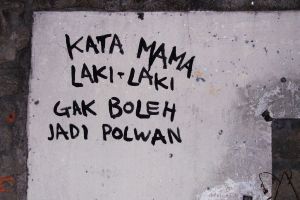 KATA MAMA
LAKI-LAKI
GAK BOLEH
JADI POLWAN